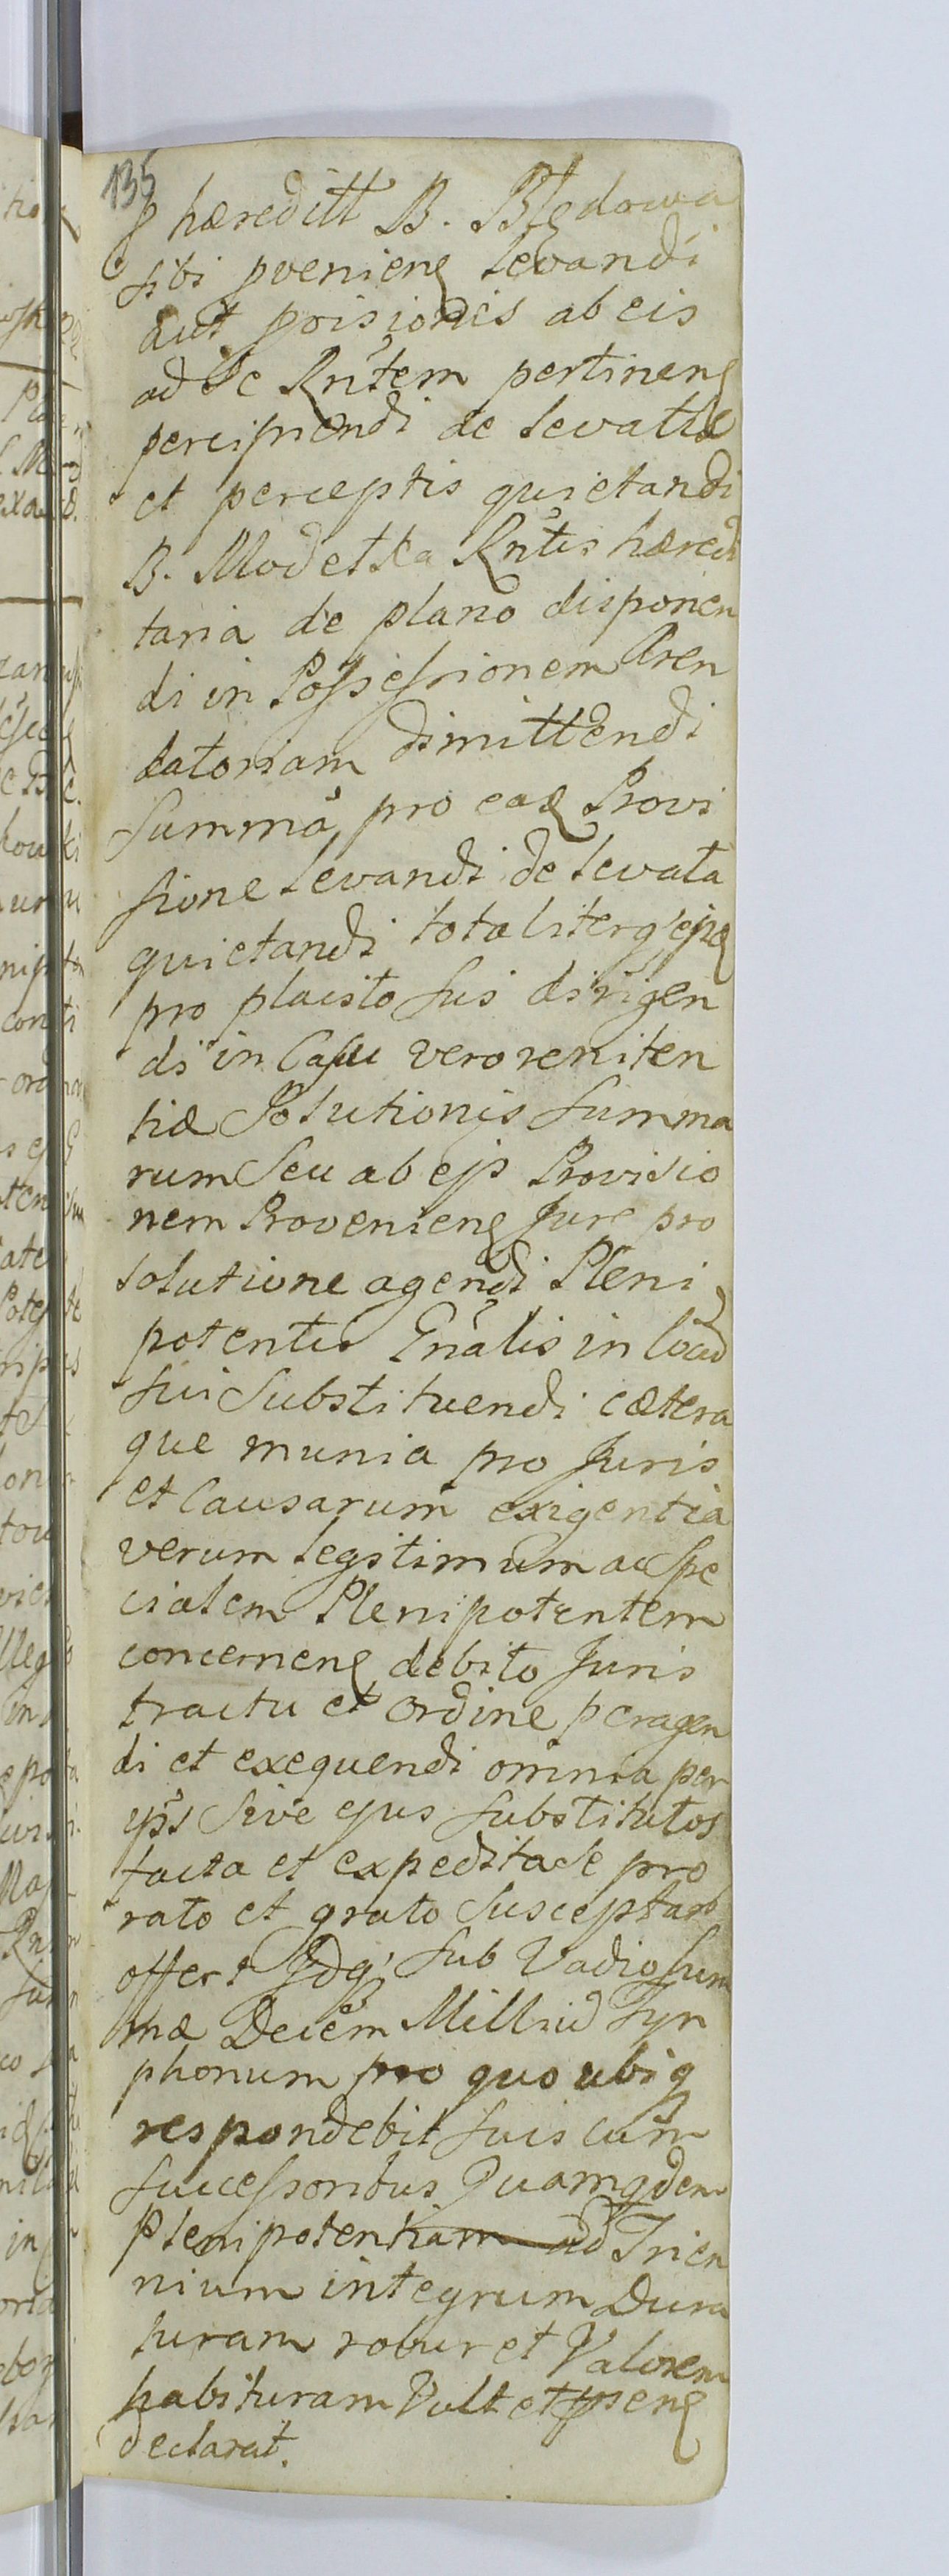 135
hæreditt B. Błędowa
sibi pveniens levandi
aut prisiones ab eis
ad Se Rntem pertinens
percipiendi de levattis
et perceptis quietandi
B. Modetka Rntis hæredi
taria de plano disponen
di in Possessionem Aren
datoriam dimittendi
Summã pro eadẽ Provi
sione levandi de levata
quietandi totaliterq
pro placito sui dirigen
di in Casu vero reniten
tiæ Solutionis Summa
rum Seu ab ejs Provisio
nem Proveniens Jure pro
solutione agendi Pleni
potentes Gnalis in locũ
sui Substituendi cætera
que munia pro Juris
et Causarum exigentia
verum legitimum ac Spe
cialem Plenipotentem
concernens debito Juris
tractu et ordine peragen
di et exequendi omnia per
ips Sive ejus Substitutos
facta et expedita Se pro
rato et grato Susceptarũ
offert Idq sub Vadio Sum
mæ Decem Milliũ Tyn
phonum pro quo ubiq
respondebit suis cum
successoribus Quamqdem
Plenipotentiam ad Trien
nium integrum Dura
turam robur et Valorem
habituram Vult et psens
declarat.